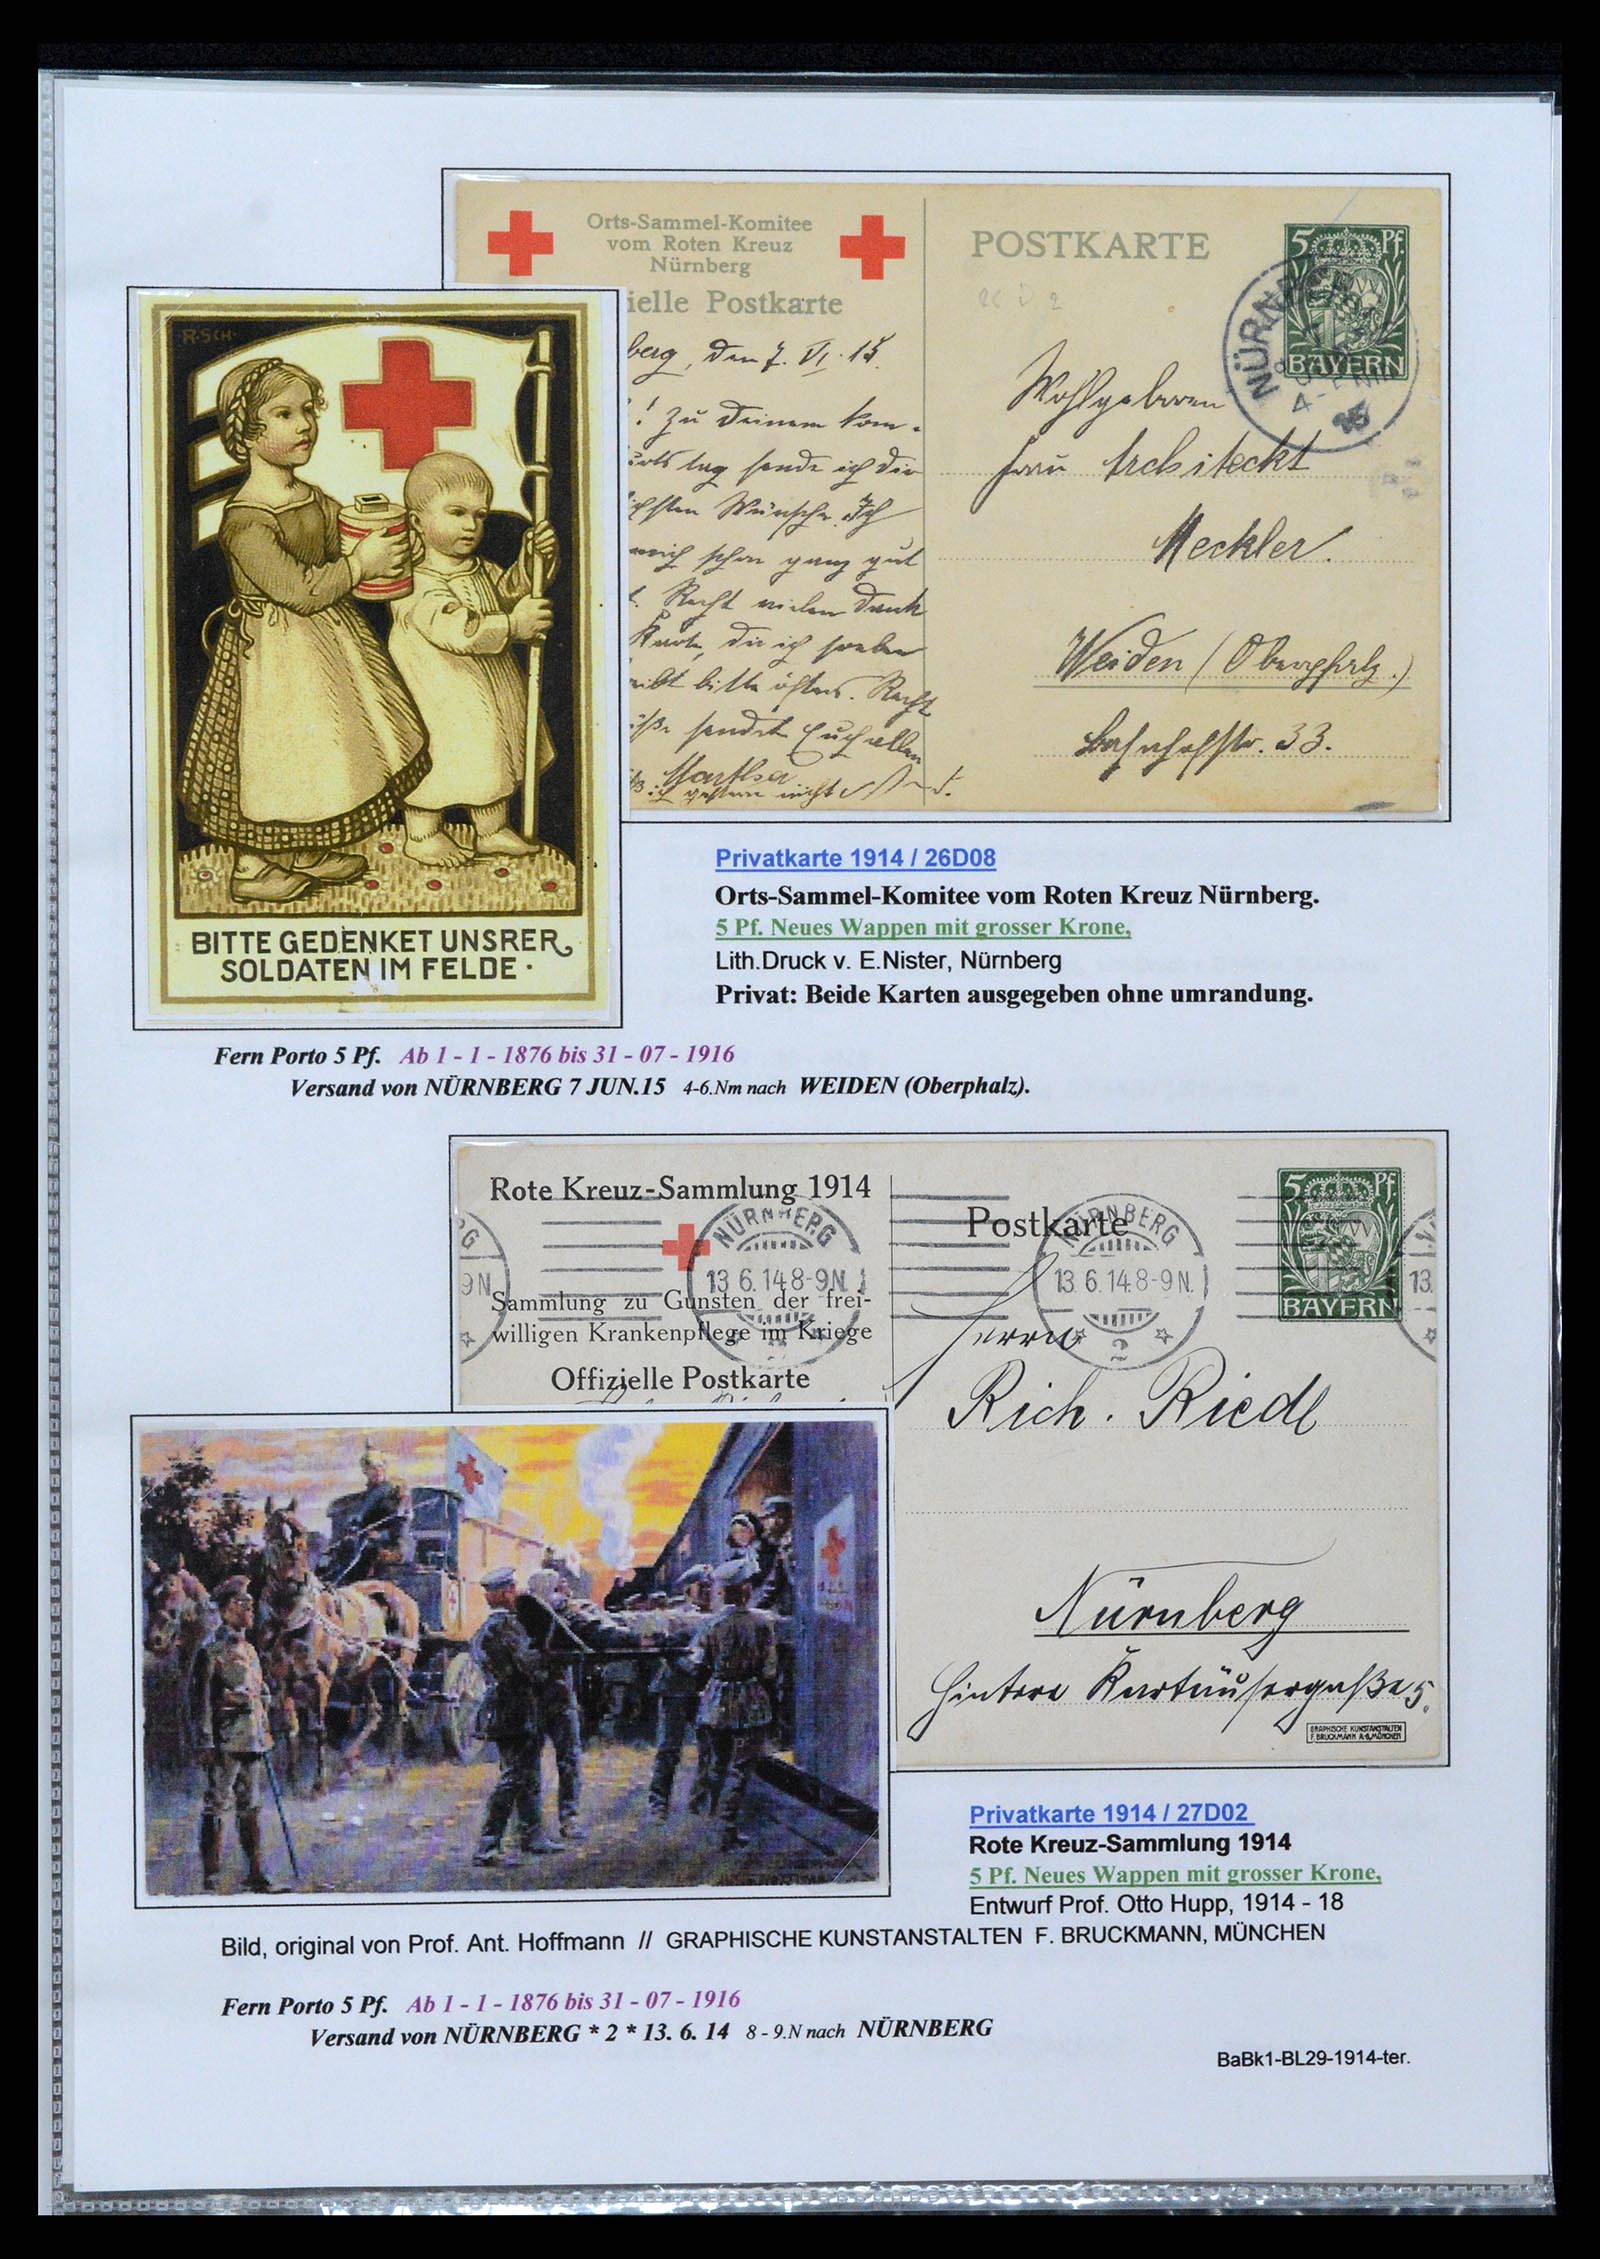 Orts-Sammel-Komitee
vom Roten Kreuz
Nürnberg
ielle Postkarte
POSTKARTE
5 Pf.
BAYERN
NÜRN
berg, den 7. VI. 15.
! Zu Deinem kom-
urtstag sende ich Dir
Wünsche. Ich
mich schon ganz gut
Recht vielen Dank
Karte, die ich soeben
bitte öfters. Recht
sendet Euch allen
Martha
ich gestern nicht
Wohlgeboren
Frau Architeckt
Meckler.
Weiden (Oberpfalz.)
Bahnhofstr. 33.
R·SCH·
BITTE GEDENKET UNSRER
SOLDATEN IM FELDE ·
Privatkarte 1914 / 26D08
Orts-Sammel-Komitee vom Roten Kreuz Nürnberg.
5 Pf. Neues Wappen mit grosser Krone,
Lith.Druck v. E.Nister, Nürnberg
Privat: Beide Karten ausgegeben ohne umrandung.
Fern Porto 5 Pf. Ab 1 - 1 - 1876 bis 31 - 07 - 1916
Versand von NÜRNBERG 7 JUN.15 4-6.Nm nach WEIDEN (Oberphalz).
Rote Kreuz-Sammlung 1914
Sammlung zu Gunsten der frei-
willigen Krankenpflege im Kriege
Offizielle Postkarte
NÜRNBERG
13.6.14.8-9N.
2
Postkarte
NÜRNBERG
13.6.14.8-9N.
2
5 Pf.
BAYERN
13.
Herrn
Rich. Riedl
Nürnberg
Hintere Kartäusergaße 5.
GRAPHISCHE KUNSTANSTALTEN
F. BRUCKMANN A.-G., MÜNCHEN
Privatkarte 1914 / 27D02
Rote Kreuz-Sammlung 1914
5 Pf. Neues Wappen mit grosser Krone,
Entwurf Prof. Otto Hupp, 1914 - 18
Bild, original von Prof. Ant. Hoffmann // GRAPHISCHE KUNSTANSTALTEN F. BRUCKMANN, MÜNCHEN
Fern Porto 5 Pf. Ab 1 - 1 - 1876 bis 31 - 07 - 1916
Versand von NÜRNBERG * 2 * 13. 6. 14 8 - 9.N nach NÜRNBERG
BaBk1-BL29-1914-ter.